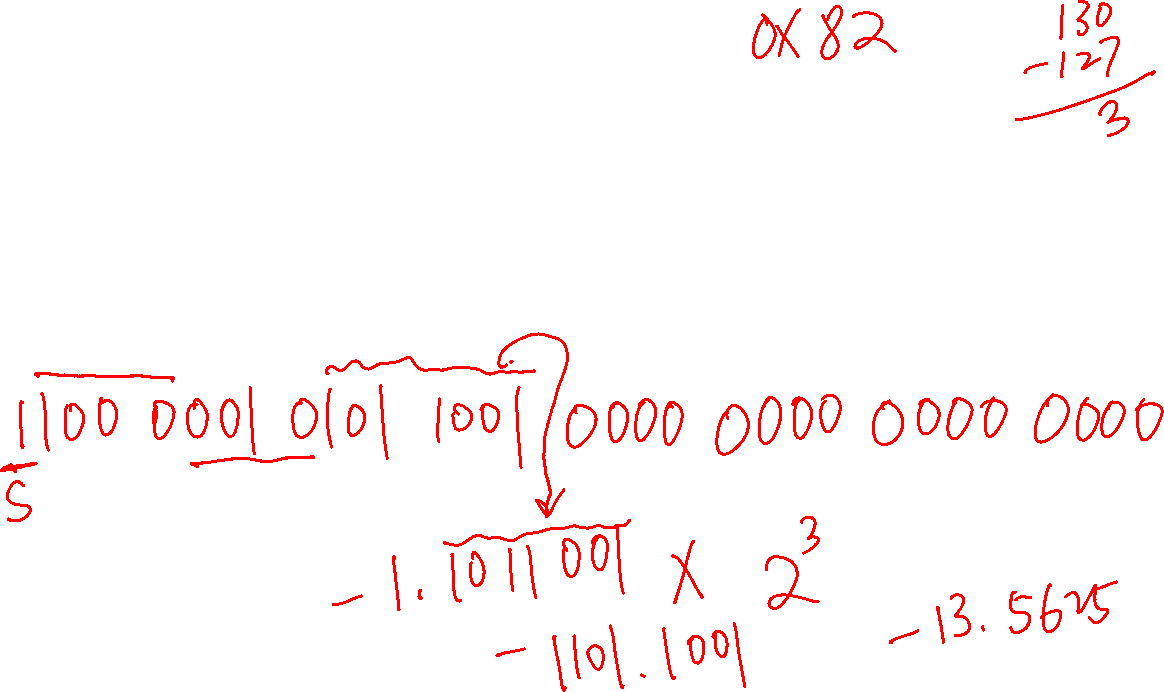 0x82 130
-127
3
1100 0001 0101 1001 0000 0000 0000 0000
S
-1.1011001 x 2^3
-1101.1001 -13.5625